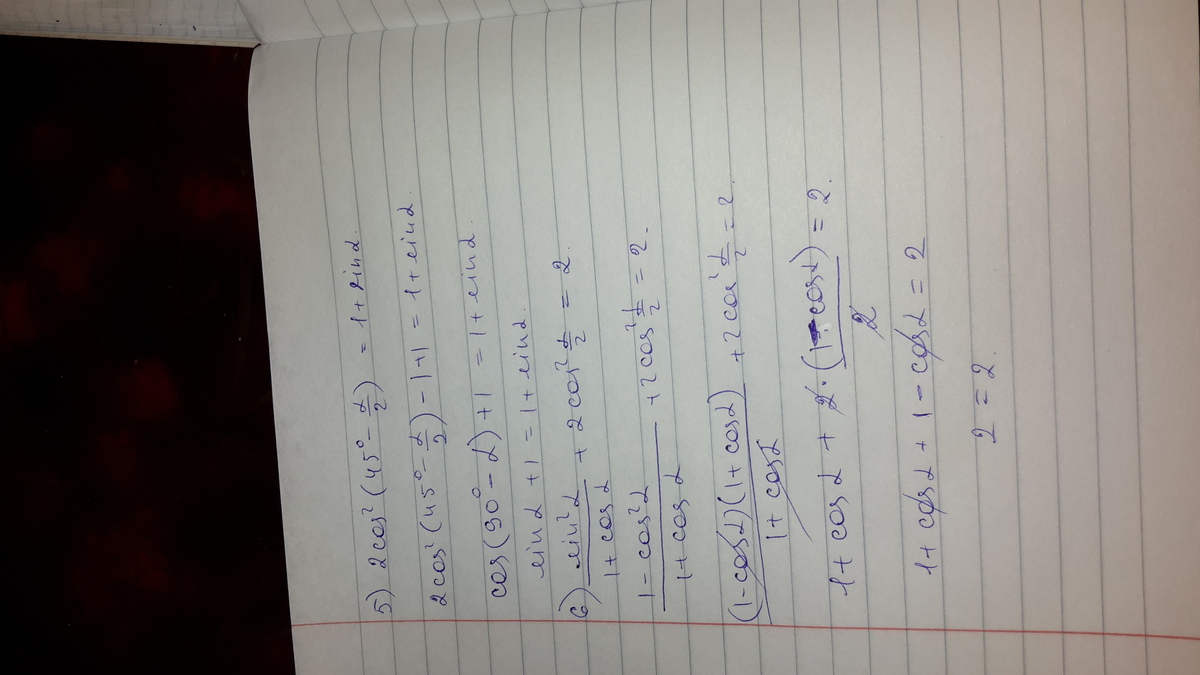 5) 2cos²(45° - α/2) = 1 + sinα.
2cos²(45° - α/2) - 1 + 1 = 1 + sinα.
cos(90° - α) + 1 = 1 + sinα.
sinα + 1 = 1 + sinα.
6) sin²α/(1 + cosα) + 2cos² α/2 = 2.
(1 - cos²α)/(1 + cosα) + 2cos² α/2 = 2.
(1 - cosα)(1 + cosα)/(1 + cosα) + 2cos² α/2 = 2.
1 + cosα + 2 · (1 - cosα)/2 = 2.
1 + cosα + 1 - cosα = 2
2 = 2.